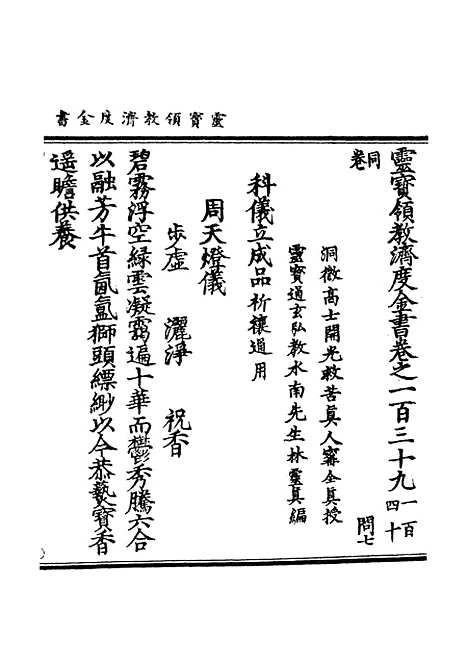 靈寶領教濟度金書
靈寶領教濟度金書卷之一百三十九一百四十
同卷
問七
洞微高士開光救苦真人甯全真授
靈寶通玄弘教水南先生林靈真編
科儀立成品祈禳通用
周天燈儀
步虛 灑淨 祝香
碧霧浮空綠雲凝靄遍十華而鬱秀騰六合
以融芳牛首氤氳獅頭縹緲以今恭爇寶香
遥瞻供養